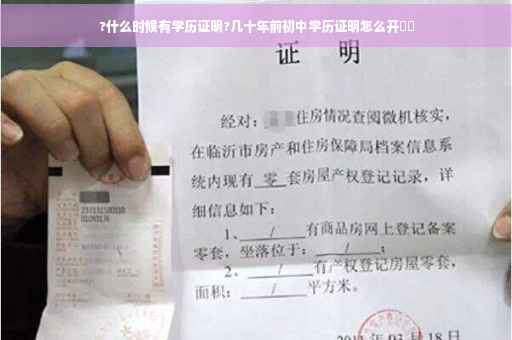 ?什么时候有学历证明?几十年前初中学历证明怎么开
证 明
经对: 住房情况查阅微机核实,
在临沂市房产和住房保障局档案信息系
统内现有 零 套房屋产权登记记录,详
细信息如下:
1、 / 有商品房网上登记备案
零套,坐落位于: / ;
2、 / 有产权登记房屋零套,
面积: / 平方米。